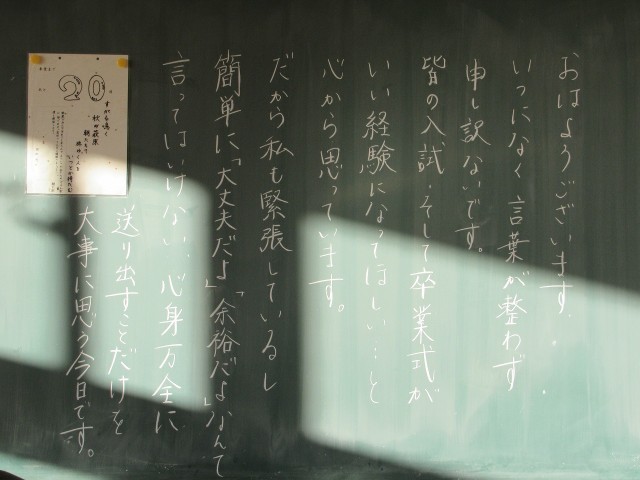 おはようございます.
いつになく言葉が整わず
申し訳ないです。
皆の入試.そして卒業式が
いい経験になってほしい…と
心から思っています。
だから私も緊張しているし
簡単に「大丈夫だよ」「余裕だよ」なんて
言ってはいけない、心身万全に
送り出すことだけを
大事に思う今日です。
20